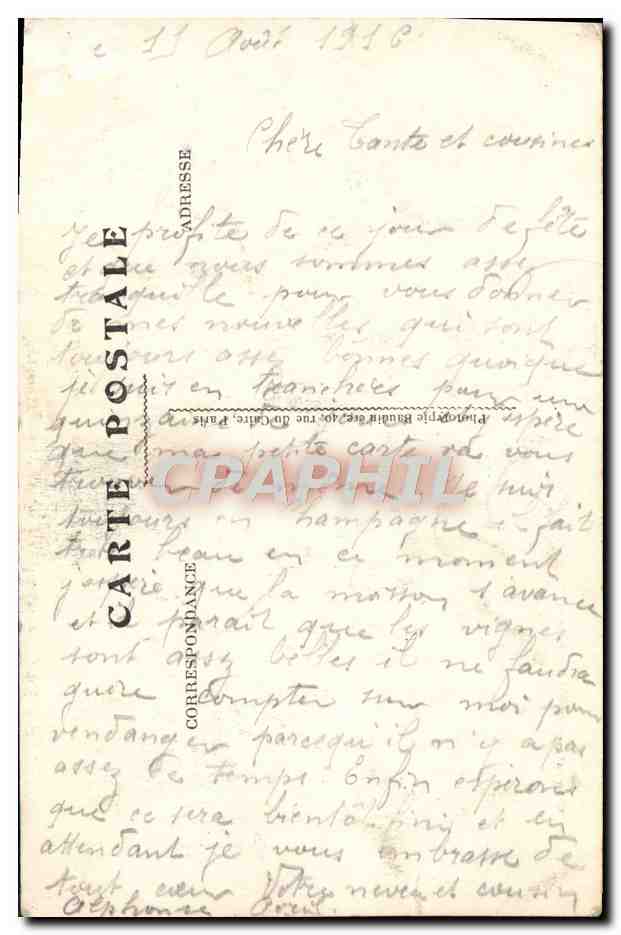 11 Août 1916
Chère Tante et cousines
Je profite de ce jour de fête
et que nous sommes assez
tranquille pour vous donner
de mes nouvelles qui sont
toujours assez bonnes quoique
je suis en tranchées pour une
j'espère
que ma petite carte va vous
trouver de même. Je suis
toujours en champagne il fait
très beau en ce moment
j'espère que la moisson s'avance
et il parait que les vignes
sont assez belles il ne faudra
guère compter sur moi pour
vendanger parcequ'il n'y a pas
assez de temps. Enfin espérons
que ce sera bientôt fini et en
attendant je vous embrasse de
tout cœur Votre neveu et cousin
Alphonse
CARTE POSTALE
ADRESSE
CORRESPONDANCE
Phototypie Baudinière, 40, rue du Caire, Paris
CPAPHIL